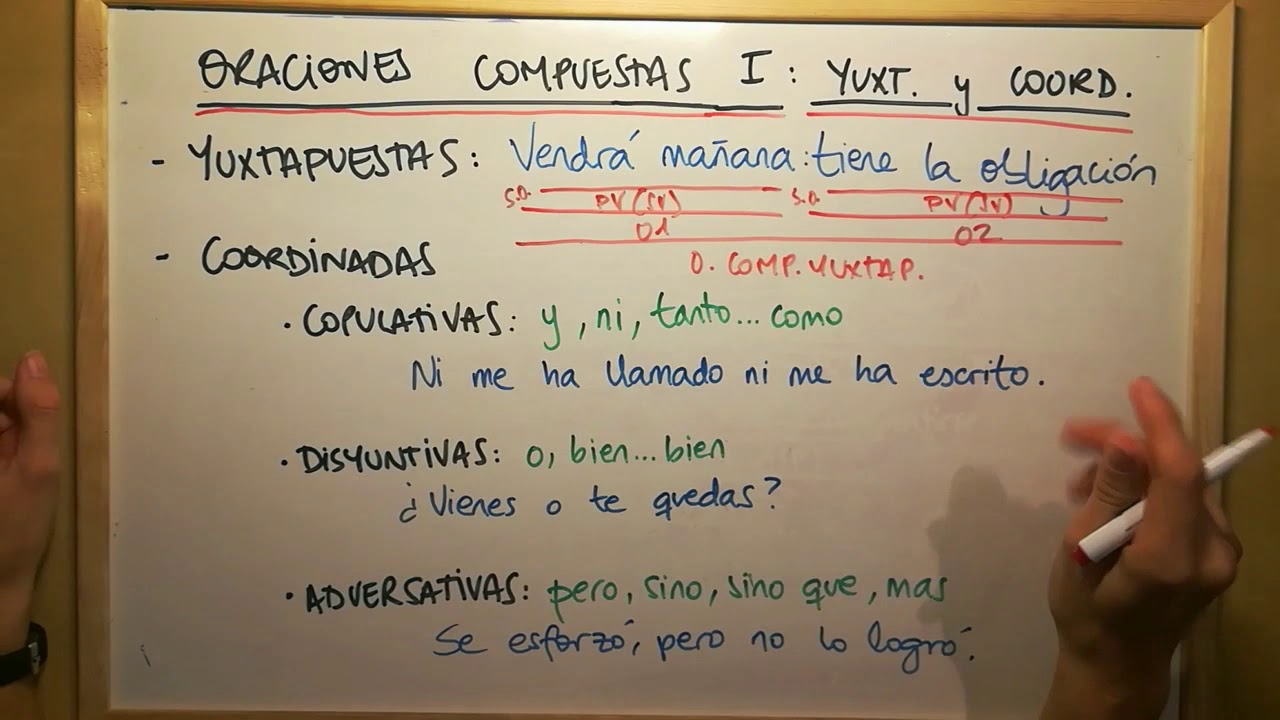 ORACIONES COMPUESTAS I: YUXT. y COORD.
- YUXTAPUESTAS: Vendrá mañana: tiene la obligación
S.O. PV (SV) S.O. PV (SV)
O1 O2
O. COMP. YUXTAP.
- COORDINADAS
· COPULATIVAS: y, ni, tanto... como
Ni me ha llamado ni me ha escrito.
· DISYUNTIVAS: o, bien... bien
¿Vienes o te quedas?
· ADVERSATIVAS: pero, sino, sino que, mas
Se esforzó, pero no lo logró.